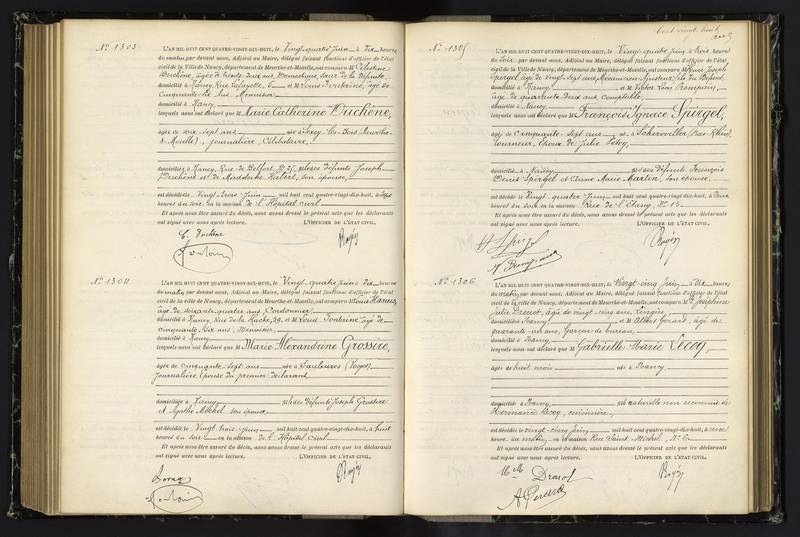 N° 1303
L'AN MIL HUIT CENT QUATRE-VINGT-DIX-HUIT, le Vingt-quatre Juin à Dix heures
du matin par devant nous, Adjoint au Maire, délégué faisant fonctions d'officier de l'état
civil de la Ville de Nancy, département de Meurthe-et-Moselle, ont comparu M Célestine
Duchêne, âgée de trente deux ans, Domestique, sœur de la défunte
domiciliés à Nancy, Rue Lafayette, et M Louis Fontaine, âgé de
Cinquante six ans, Menuisier
domicilié à Nancy
lesquels nous ont déclaré que M Marie Catherine Duchêne,
âgée de dix sept ans née à
& Moselle), journalière, Célibataire,
domiciliée à Nancy, Rue de Belfort, N° 25, fille des défunts Joseph
Duchêne et de Madeleine Hubert, son épouse,
est décédée le Vingt trois Juin mil huit cent quatre-vingt-dix-huit, à sept
heures du soir, en la maison de l'Hôpital civil
Et après nous être assuré du décès, nous avons dressé le présent acte que les déclarants
ont signé avec nous après lecture. L'OFFICIER DE L'ÉTAT CIVIL,
C. Duchêne
N° 1304
L'AN MIL HUIT CENT QUATRE-VINGT-DIX-HUIT, le Vingt-quatre Juin à Dix heures
du matin par devant nous, Adjoint au Maire, délégué faisant fonctions d'officier de l'état
civil de la ville de Nancy, département de Meurthe-et-Moselle, ont comparu M Louis
âgé de soixante quatre ans, Cordonnier
domicilié à Nancy, Rue de la Hache, 29, et M Louis Fontaine âgé de
cinquante six ans, Menuisier
domicilié à Nancy
lesquels nous ont déclaré que M Marie Alexandrine Grossire,
âgée de cinquante sept ans née à Saulxures (Vosges)
Journalière, épouse du premier déclarant,
domiciliée à Nancy fille des défunts Joseph Grossire
et Agathe son épouse,
est décédée le Vingt trois Juin mil huit cent quatre-vingt-dix-huit, à huit
heures du soir en la maison de l'Hôpital Civil
Et après nous être assuré du décès, nous avons dressé le présent acte que les déclarants
ont signé avec nous après lecture. L'OFFICIER DE L'ÉTAT CIVIL,
Cent vingt huit
N° 1305
L'AN MIL HUIT CENT QUATRE-VINGT-DIX-HUIT, le Vingt quatre Juin à trois heures
du soir par devant nous, Adjoint au Maire, délégué faisant fonctions d'officier de l'état
civil de la Ville de Nancy, département de Meurthe-et-Moselle, ont comparu M Joseph
Spirgel, âgé de vingt sept ans, Mécanicien Ajusteur, fils du défunt
domicilié à Nancy et M Victor Léon
âgé de quarante deux ans, comptable,
domicilié à Nancy
lesquels nous ont déclaré que M François Ignace Spirgel,
âgé de Cinquante sept ans né à Scherwiller (Bas-Rhin)
Tourneur, époux de Julie
domicilié à Nancy fils des défunts François
Denis Spirgel et Anne Marie Martin, son épouse,
est décédé le Vingt quatre Juin mil huit cent quatre-vingt-dix-huit, à
heures du soir en la maison Rue de l'Etang, N° 15
Et après nous être assuré du décès, nous avons dressé le présent acte que les déclarants
ont signé avec nous après lecture. L'OFFICIER DE L'ÉTAT CIVIL,
N° 1306
L'AN MIL HUIT CENT QUATRE-VINGT-DIX-HUIT, le vingt-cinq Juin à Dix heures
du matin, par devant nous, Adjoint au Maire, délégué faisant fonctions d'officier de l'état
civil de la ville de Nancy, département de Meurthe-et-Moselle, ont comparu M Joséphine
Julie Drouot, âgée de vingt-cinq ans, Lingère,
domiciliée à Nancy, et M Albert Gérard, âgé de
quarante-un ans, Garçon de bureau,
domicilié à Nancy
lesquels nous ont déclaré que M Gabrielle Marie Lecoq,
âgée de huit mois née à Nancy,
domiciliée à Nancy, fille naturelle non reconnue de
Hermance Lecoq, cuisinière,
est décédée le vingt-cinq Juin mil huit cent quatre-vingt-dix-huit, à
heures du matin, en la maison Rue Saint Michel, N°
Et après nous être assuré du décès, nous avons dressé le présent acte que les déclarants
ont signé avec nous après lecture. L'OFFICIER DE L'ÉTAT CIVIL,
Drouot
A. Gérard